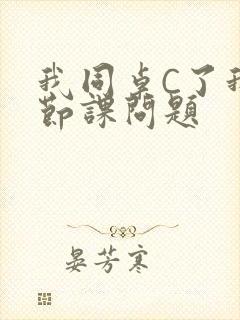 我同桌C了我
节课问题
晏芳寒